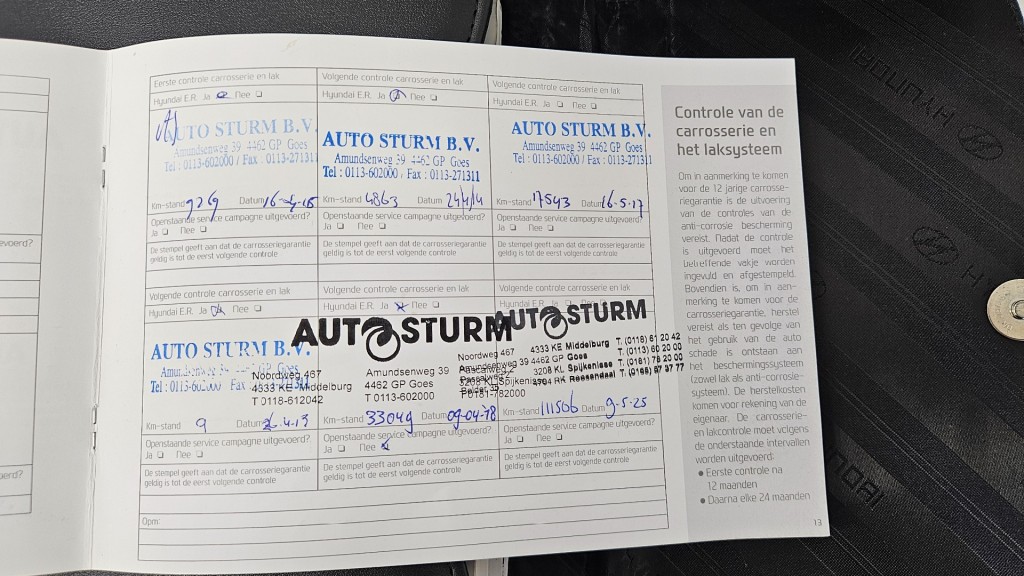 Eerste controle carrosserie en lak
Hyundai E.R. Ja Nee
AUTO STURM B.V.
Amundsenweg 39 4462 GP Goes
Tel : 0113-602000 / Fax : 0113-271311
Km-stand Datum
Openstaande service campagne uitgevoerd?
Ja Nee
De stempel geeft aan dat de carrosseriegarantie
geldig is tot de eerst volgende controle
Volgende controle carrosserie en lak
Hyundai E.R. Ja Nee
AUTO STURM B.V.
Amundsenweg 39 4462 GP Goes
Tel : 0113-602000 / Fax : 0113-271311
Km-stand 4863 Datum
Openstaande service campagne uitgevoerd?
Ja Nee
De stempel geeft aan dat de carrosseriegarantie
geldig is tot de eerst volgende controle
Volgende controle carrosserie en lak
Hyundai E.R. Ja Nee
AUTO STURM B.V.
Amundsenweg 39 4462 GP Goes
Tel : 0113-602000 / Fax : 0113-271311
Km-stand 17543 Datum 16-5-17
Openstaande service campagne uitgevoerd?
Ja Nee
De stempel geeft aan dat de carrosseriegarantie
geldig is tot de eerst volgende controle
Volgende controle carrosserie en lak
Hyundai E.R. Ja Nee
AUTO STURM B.V.
Km-stand 9 Datum
Openstaande service campagne uitgevoerd?
Ja Nee
De stempel geeft aan dat de carrosseriegarantie
geldig is tot de eerst volgende controle
Volgende controle carrosserie en lak
Hyundai E.R. Ja Nee
AUTO STURM
Noordweg 467
4333 KE Middelburg
T 0118-612042
Amundsenweg 39
4462 GP Goes
T 0113-602000
3208 KL Spijkenisse
T 0181-782000
Km-stand 33049 Datum 09-04-18
Openstaande service campagne uitgevoerd?
Ja Nee
De stempel geeft aan dat de carrosseriegarantie
geldig is tot de eerst volgende controle
Volgende controle carrosserie en lak
Hyundai E.R.
AUTO STURM
Noordweg 467 4333 KE Middelburg T. (0118) 61 20 42
Amundsenweg 39 4462 GP Goes T. (0113) 60 20 00
3208 KL Spijkenisse T. (0181) 78 20 00
Km-stand 111506 Datum 9-5-25
Openstaande service campagne uitgevoerd?
Ja Nee
De stempel geeft aan dat de carrosseriegarantie
geldig is tot de eerst volgende controle
Opm:
Controle van de
carrosserie en
het laksysteem
Om in aanmerking te komen
voor de 12 jarige carrosse-
riegarantie is de uitvoering
van de controles van de
anti-corrosie bescherming
vereist. Nadat de controle
is uitgevoerd moet het
betreffende vakje worden
ingevuld en afgestempeld.
Bovendien is, om in aan-
merking te komen voor de
carrosseriegarantie, herstel
vereist als ten gevolge van
het gebruik van de auto
schade is ontstaan aan
het beschermingssysteem
(zowel lak als anti-corrosie-
systeem). De herstelkosten
komen voor rekening van de
eigenaar. De carrosserie-
en lakcontrole moet volgens
de onderstaande intervallen
worden uitgevoerd:
● Eerste controle na
12 maanden
● Daarna elke 24 maanden
13
HYUNDAI